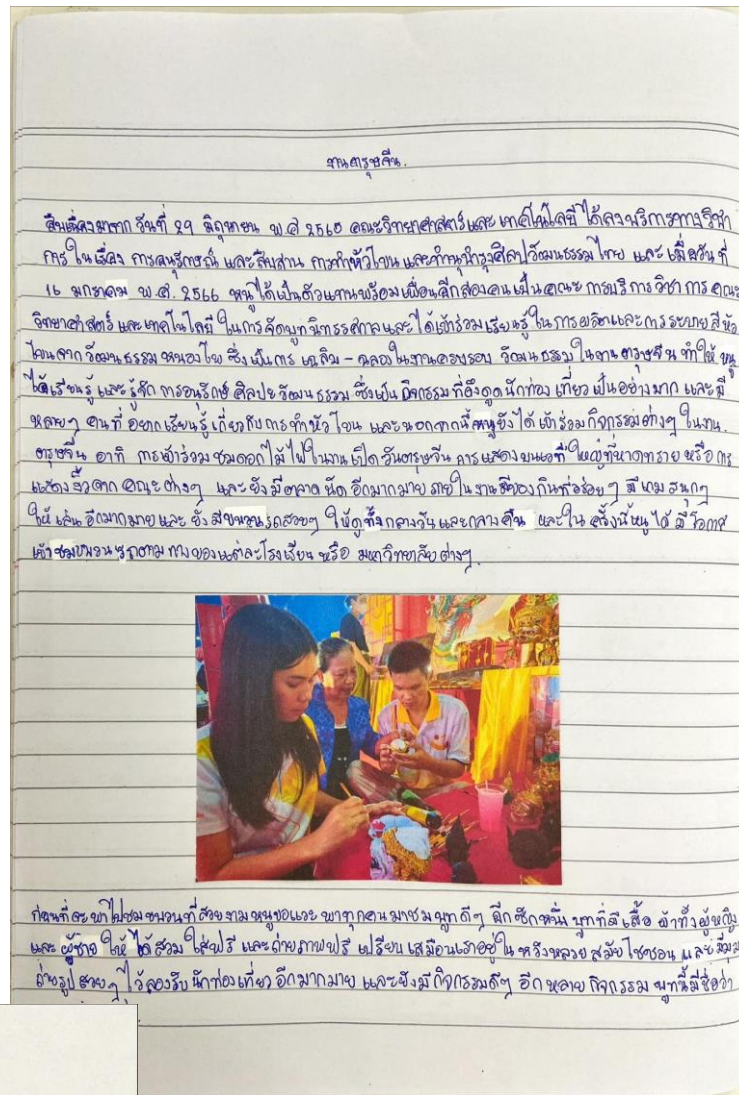 งานตรุษจีน.
สืบเนื่องมาจาก วันที่ 29 มิถุนายน พ.ศ 2560 คณะวิทยาศาสตร์และ เทคโนโลยี ได้ลงบริการทางวิชา
การ ในเรื่อง การอนุรักษณ์ และสืบสาน การทำหัวโขน และทำนุบำรุงศิลปวัฒนธรรมไทย และ เมื่อวันที่
16 มกราคม พ.ศ. 2566 หนูได้เป็นตัวแทนพร้อมเพื่อนอีกสองคนเป็นคณะ การบริการวิชาการ คณะ
วิทยาศาสตร์ และเทคโนโลยี ในการจัดบูทนิทรรศกาลและได้เข้าร่วมเรียนรู้ ในการผลิตและการระบายสีหัว
โขนจาก วัฒนธรรมหนองโพ ซึ่งเป็นการ เฉลิม - ฉลองในงานครบรอบ วัฒนธรรม ในงานตรุษจีน ทำให้ หนู
ได้เรียนรู้ และรู้จัก การอนุรักษ์ ศิลปะวัฒนธรรม ซึ่งเป็น กิจกรรมที่ดึงดูดนักท่อง เที่ยวเป็นอย่างมาก และมี
หลายๆ คนที่ อยากเรียนรู้ เกี่ยวกับการทำหัวโขน และนอกจากนี้หนูยังได้เข้าร่วม กิจกรรมต่างๆ ในงาน.
ตรุษจีน อาทิ การเข้าร่วม ชมดอกไม้ไฟในงานเปิดวันตรุษจีน การแสดงบนเวที ใหญ่ที่หาดทราย หรือ การ
แสดงงิ้วจาก คณะต่างๆ และยังมีตลาดนัด อีกมากมาย ภายในงานมีของกินที่อร่อยๆ มีเกมสนุกๆ
ให้ เล่น อีกมากมายและ ยังมีขบวนรถสวยๆ ให้ดูทั้งกลางวันและกลางคืน และใน ครั้งนี้หนูได้ มีโอกาศ
เข้าชมขบวน ตามทางของแต่ละโรงเรียน หรือ มหาวิทยาลัยต่างๆ.
ก่อนที่จะพาไปชมขบวนที่สวยงามหนูขอแวะ พาทุกคนมาชมบูทดีๆ อีกซักหนึ่ง บูทที่มีเสื้อ ผ้าทั้งผู้หญิง
และ ผู้ชาย ให้ ได้สวม ใส่ฟรี และถ่ายภาพฟรี เปรียบเสมือนเราอยู่ใน หลาย สมัย และมีมุม
ถ่ายรูปสวยๆ ไว้ลองรับ นักท่องเที่ยว อีกมากมาย และยังมีกิจกรรมดีๆ อีก หลาย กิจกรรม บูทนี้มีชื่อว่า